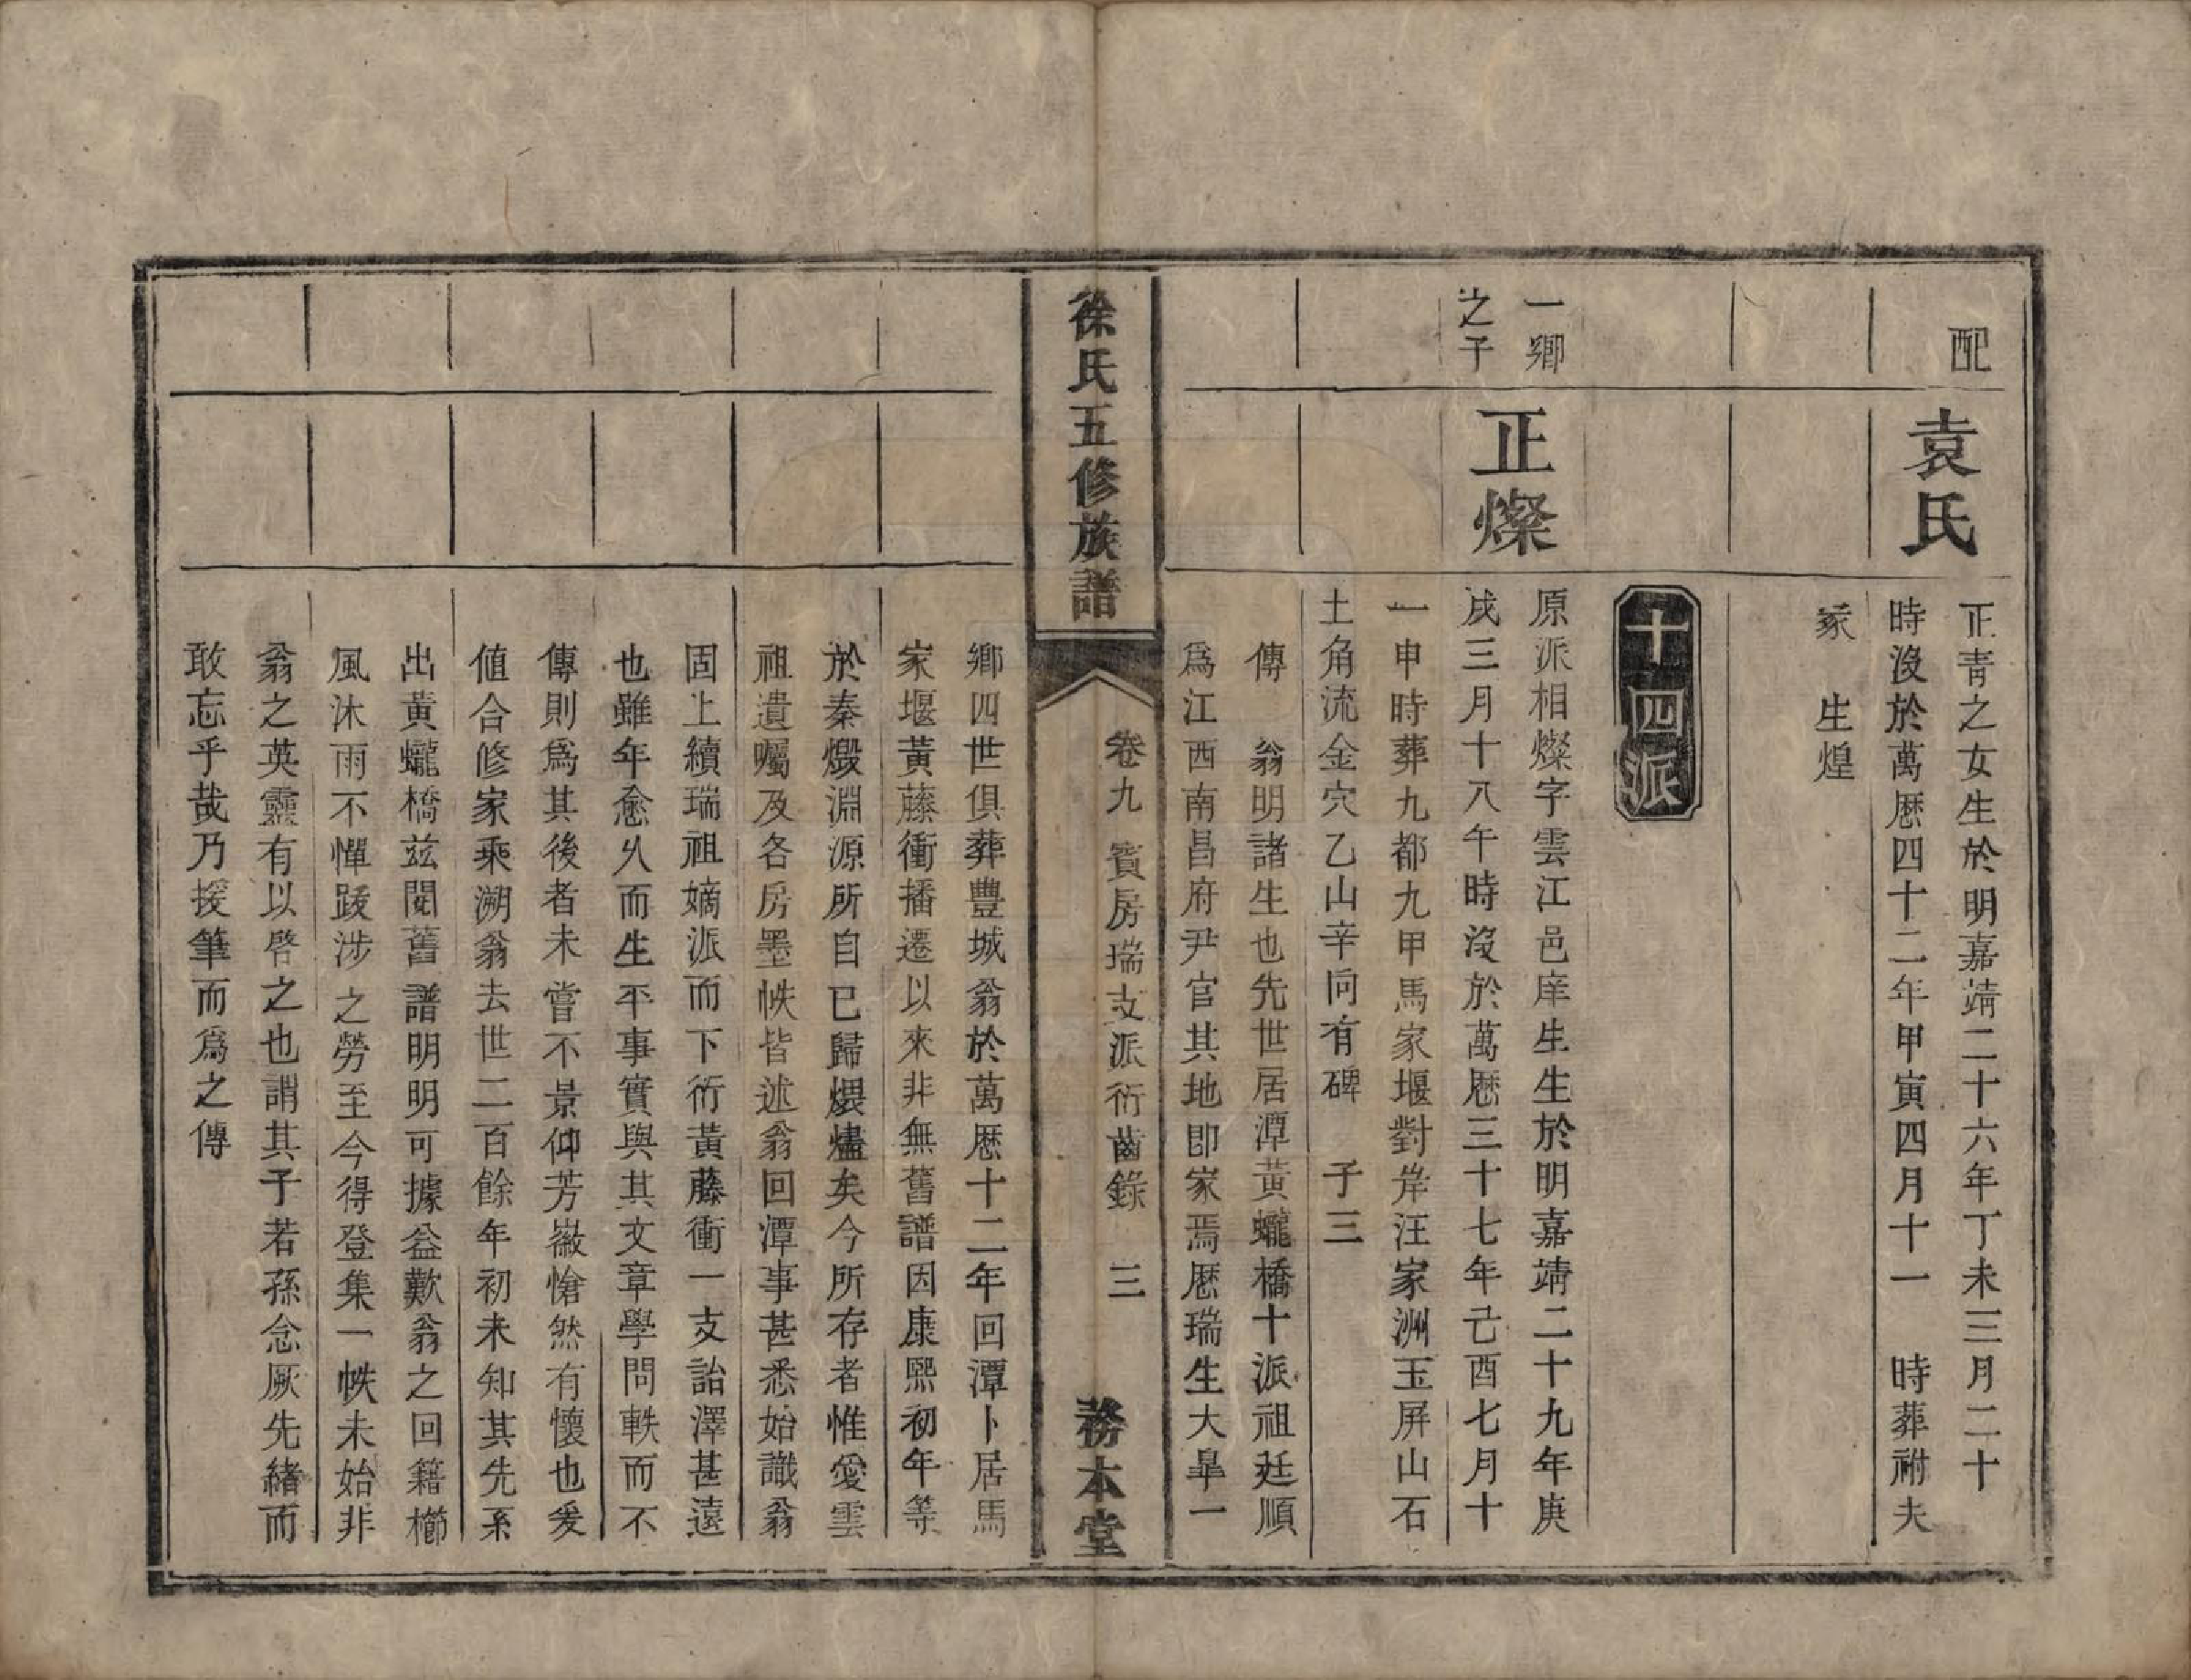 配
袁氏
正青之女生於明嘉靖二十六年丁未三月二十
時沒於萬厯四十二年甲寅四月十一　時葬祔夫
冢　生煌
十四派
一鄉
之子
正燦
原派相燦字雲江邑庠生生於明嘉靖二十九年庚
戌三月十八午時沒於萬厯三十七年己酉七月十
一申時葬九都九甲馬家堰對岸汪家洲玉屏山石
土角流金穴乙山辛向有碑　子三
傳　翁明諸生也先世居潭黃蠬橋十派祖廷順
爲江西南昌府尹官其地卽家焉厯瑞生大皐一
徐氏五修族譜
卷九　賓房瑞支派衍齒錄　三
務本堂
鄉四世俱葬豐城翁於萬厯十二年回潭卜居馬
家堰黃藤衝播遷以來非無舊譜因康熙初年等
於秦燬淵源所自已歸煨燼矣今所存者惟愛雲
祖遺囑及各房墨帙皆述翁回潭事甚悉始識翁
固上續瑞祖嫡派而下衍黃藤衝一支詒澤甚遠
也雖年愈久而生平事實與其文章學問軼而不
傳則爲其後者未嘗不景仰芳徽愴然有懷也爰
値合修家乘溯翁去世二百餘年初未知其先系
出黃蠬橋玆閱舊譜明明可據益歎翁之回籍櫛
風沐雨不憚跋涉之勞至今得登集一帙未始非
翁之英靈有以啓之也謂其子若孫念厥先緖而
敢忘乎哉乃援筆而爲之傳